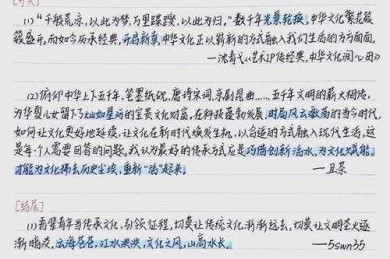 [开头]
(1)"千般荒凉,以此为梦,万里蹀躞,以此为归。"数千年光景轮换,中华文化繁花簇
簇盛开,而如今历承经典,开启新章,中华文化正以崭新的方式融入我们生活的方方面面。
——沈春戈《艺术IP传经典,中华文化润心田》
(2)俯仰中华上下五千年,笔墨纸砚、唐诗宋词、京剧昆曲……五千年文明的薪火相传,
为华夏儿女留下了灿如星河的宝贵文化财富,在科技蓬勃发展,时局风云激荡的当今时代,
如何让文化更好地延续,让文化在新时代焕发生机,以合适的方式融入现代生活,这
是每一个人需要回答的问题,我认为最好的传承方式应是巧借创新活水,为文化赋能,
才能为文化拂去历史尘埃,重新"活"起来。 ——且茶
[结尾]
(1)吾辈青年当传承文化,引领征程,切莫让传统文化渐渐远去,切莫让文明圣火逐
渐暗淡,云海苍苍,江水泱泱,文化之风,山高水长。 ——5swn35